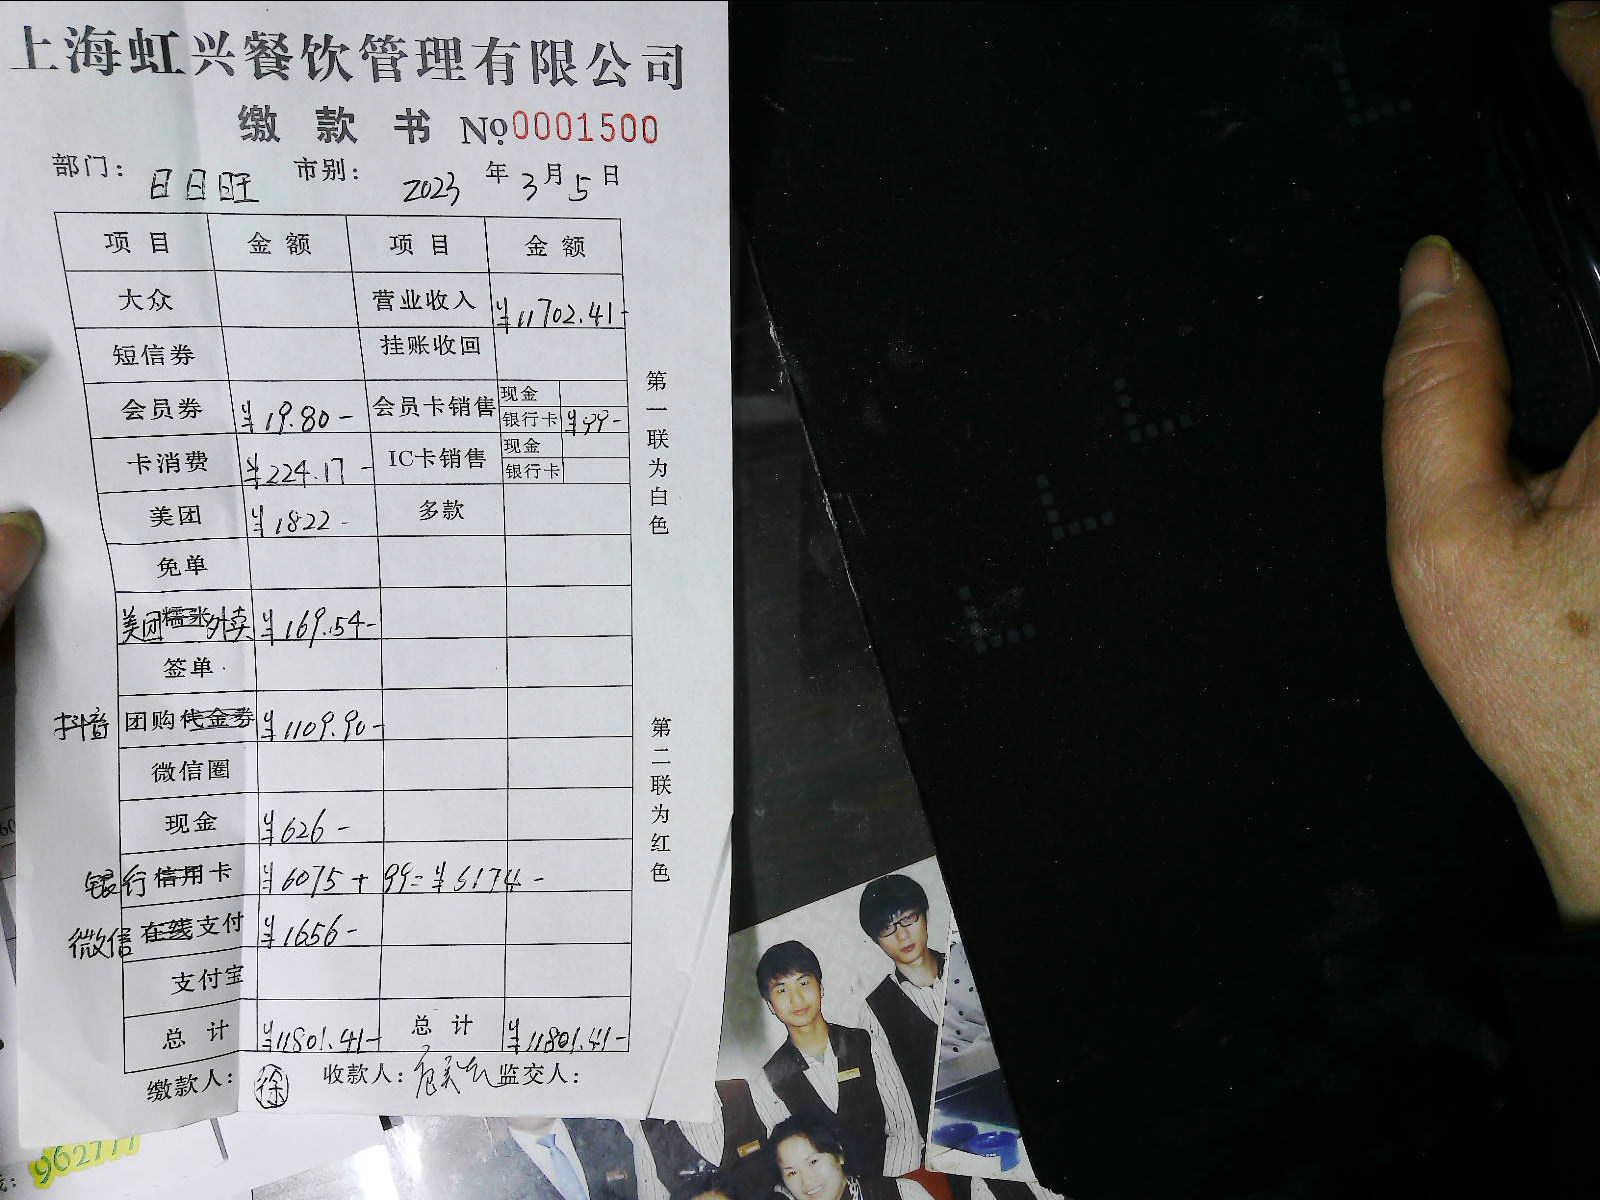 上海虹兴餐饮管理有限公司
缴款书 No.0001500
部门： 日日旺 市别： 2023年3月5日
项目 金额 项目 金额
大众 营业收入 ¥11702.41-
短信券 挂账收回
会员券 ¥19.80- 会员卡销售 现金
银行卡 ¥99-
卡消费 ¥224.17- IC卡销售 现金
银行卡
美团 ¥1822- 多款
免单
美团糯米外卖 ¥169.54-
签单
抖音 团购代金券 ¥1109.90-
微信圈
现金 ¥626-
银行信用卡 ¥6075+99=¥6174-
微信 在线支付 ¥1656-
支付宝
总计 ¥11801.41- 总计 ¥11801.41-
缴款人： 徐 收款人： 监交人：
第一联为白色
第二联为红色
962777